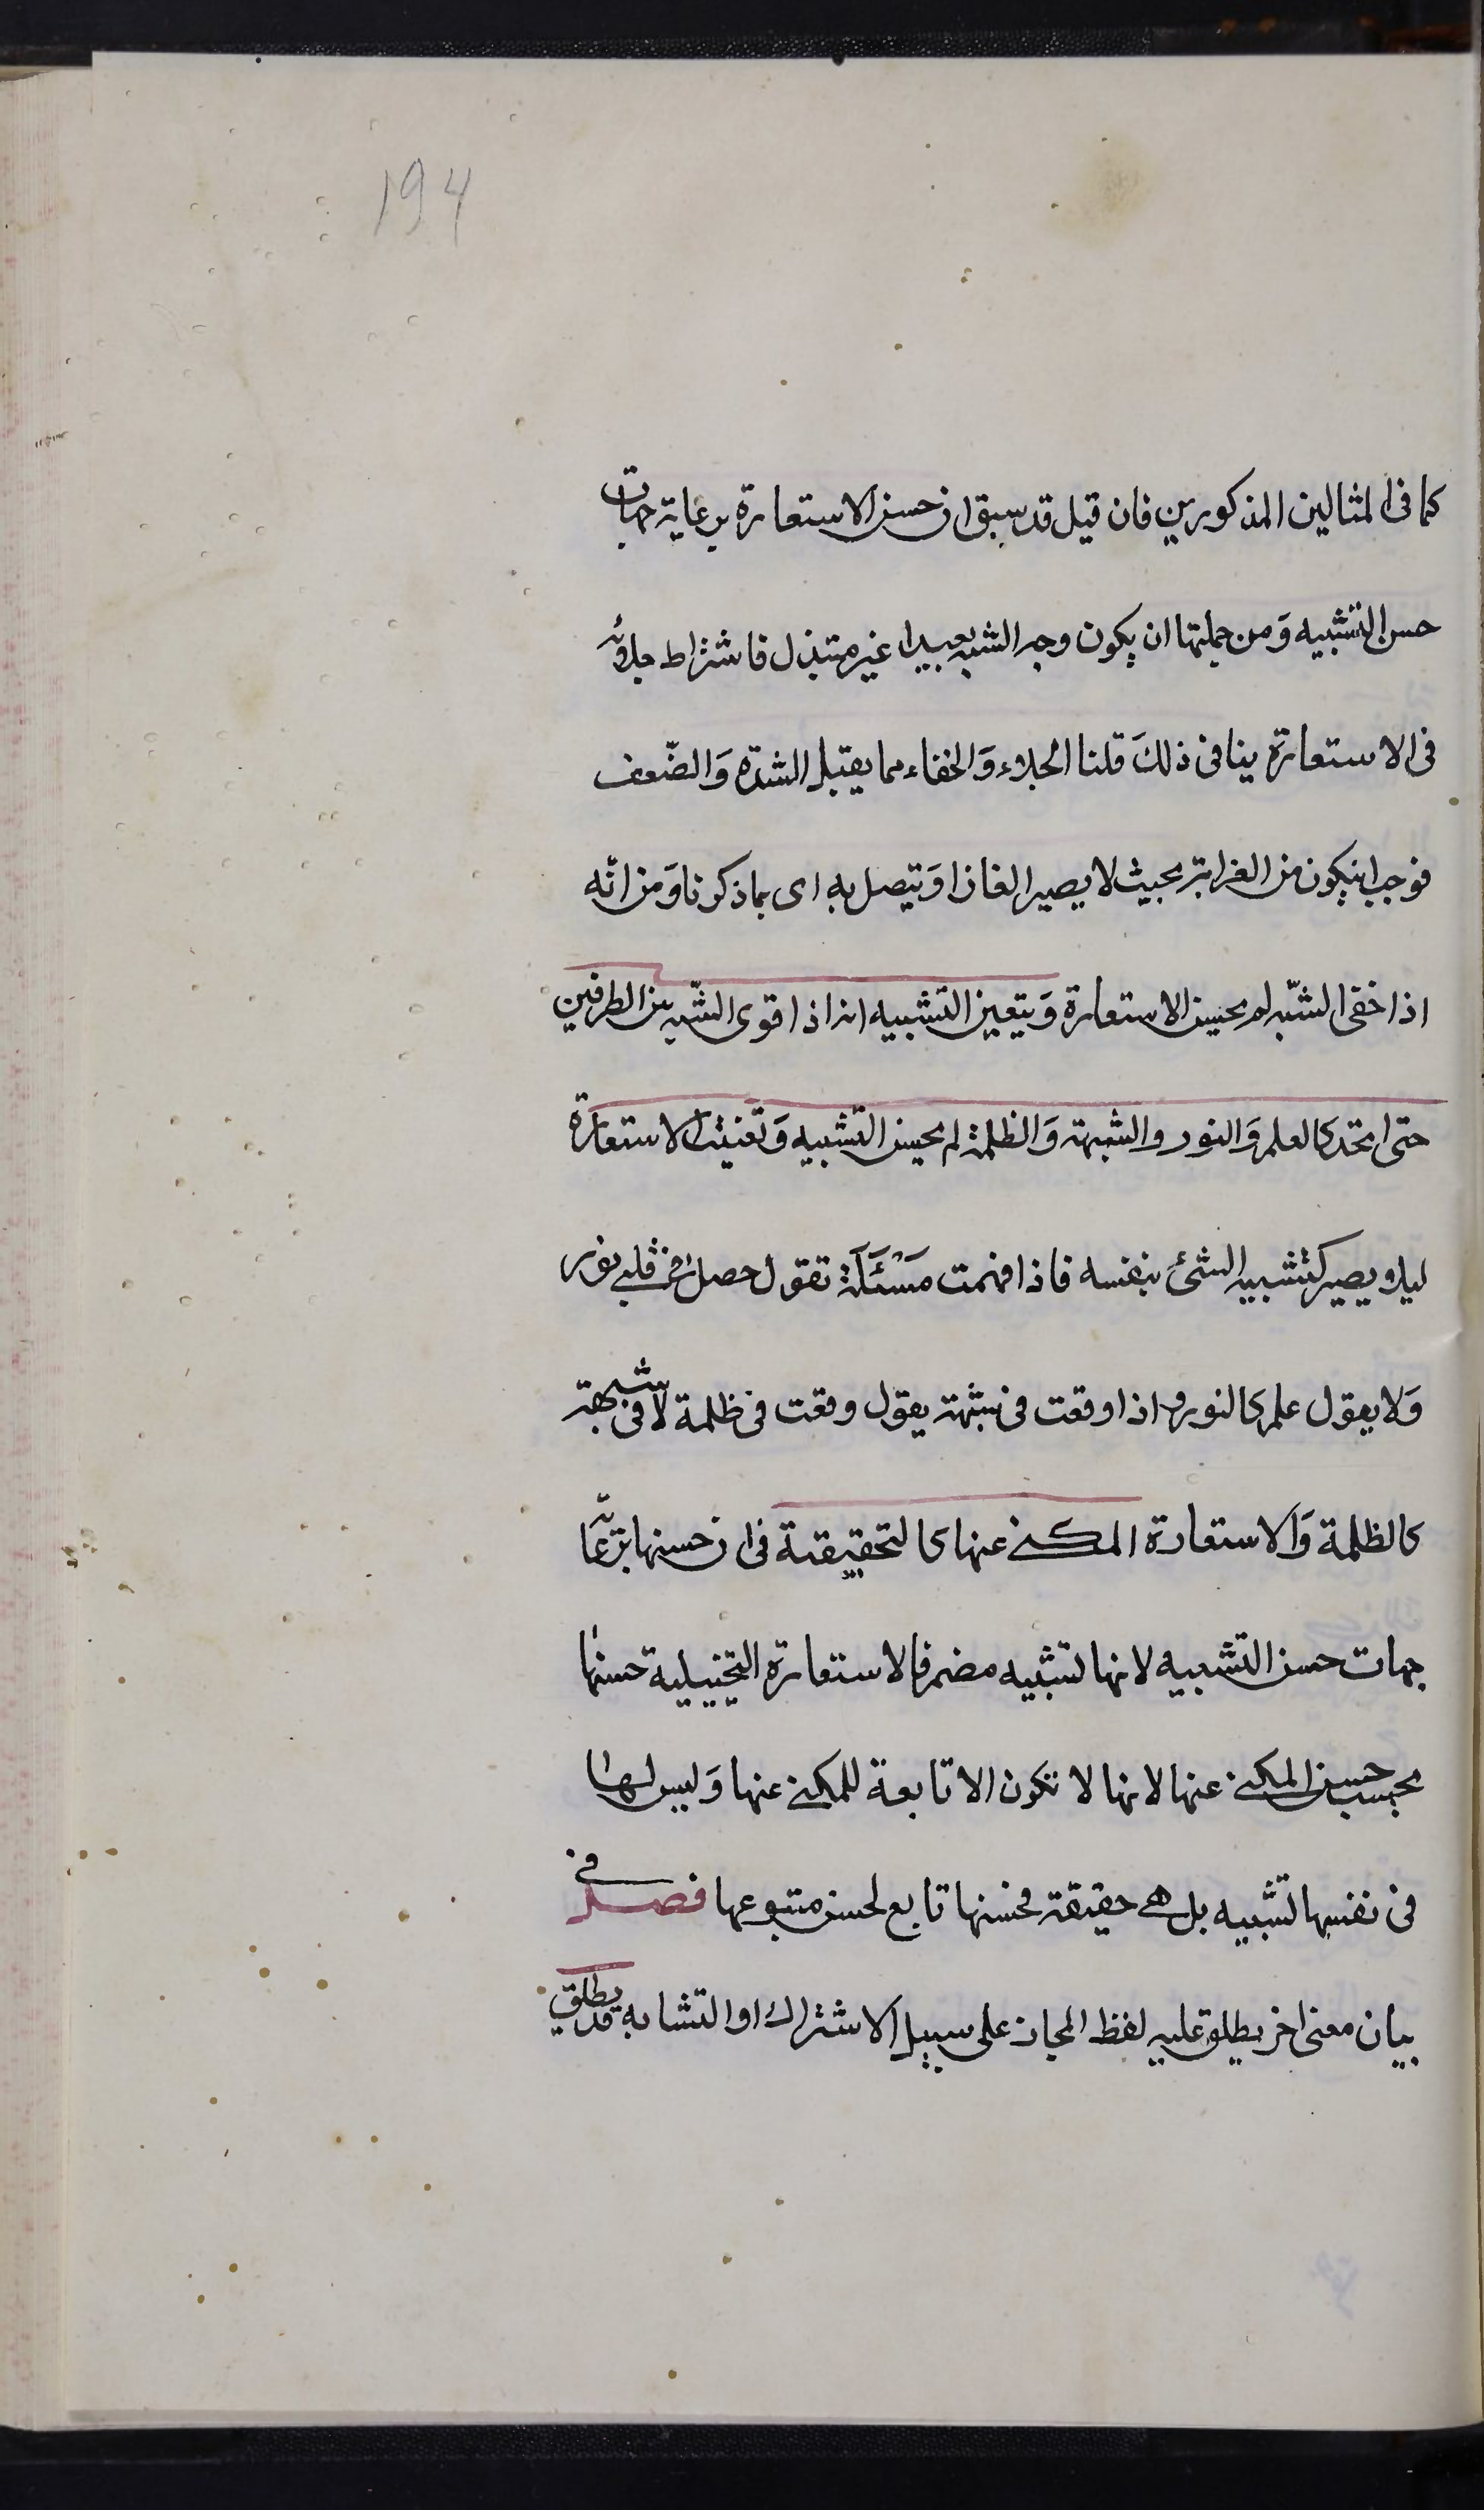 194
كما فى المثالين المذكورين فان قيل قد سبق ان حسن الاستعارة برعاية جهات
حسن التشبيه وَمن جملتها ان يكون وجه الشبه بعيدا غير مبتذل فاشتراط جلائه
فى الاستعارة ينافى ذلكَ قلنا الجلاء وَالخفاء مما يقبل الشدة وَالضّعف
فوجب ان يكون من الغرابة بحيث لا يصير الغازا وَيتصل به اى بما ذكرنا وَمن انّه
اذا خفى الشّبه لم يحسن الاستعارة وَيتعين التشبيه انه اذا قوى الشّبه بين الطرفين
حتى اتحدا كالعلم وَالنور والشبهة وَالظلمة لم يحسن التشبيه وَتعينت الاستعارة
ليلا يصير كتشبيه الشئ بنفسه فاذا فهمت مَسْئَلَة تقول حصل فى قلبى نور
وَلا يقول علم كالنور واذا وقعت فى شبهة يقول وقعت فى ظلمة لا فى شبهة
كالظلمة وَالاستعارة المكنى عنها كالتحقيقية فى ان حسنها برعاية
جهات حسن التشبيه لانها تشبيه مضمر فالاستعارة التخييلية حسنها
بحسب حسن المكنى عنها لانها لا تكون الا تابعة للمكنى عنها وَليس لها
فى نفسها تشبيه بل هى حقيقة فحسنها تابع لحسن متبوعها فصل فى
بيان معنى اخر يطلق عليه لفظ المجاز على سبيل الاشتراك او التشابه قد يطلق